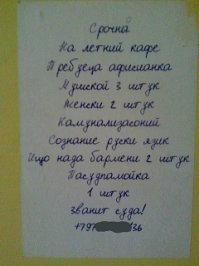 Срочна
На летний кафе
Требуеца афисианка
Мушской 3 штук
Женски 2 штук
Камунализасоний
Сознание руски язик
Ищо нада бармени 2 штук
Пасудамойка
1 штук
Званит суда!
+797 36